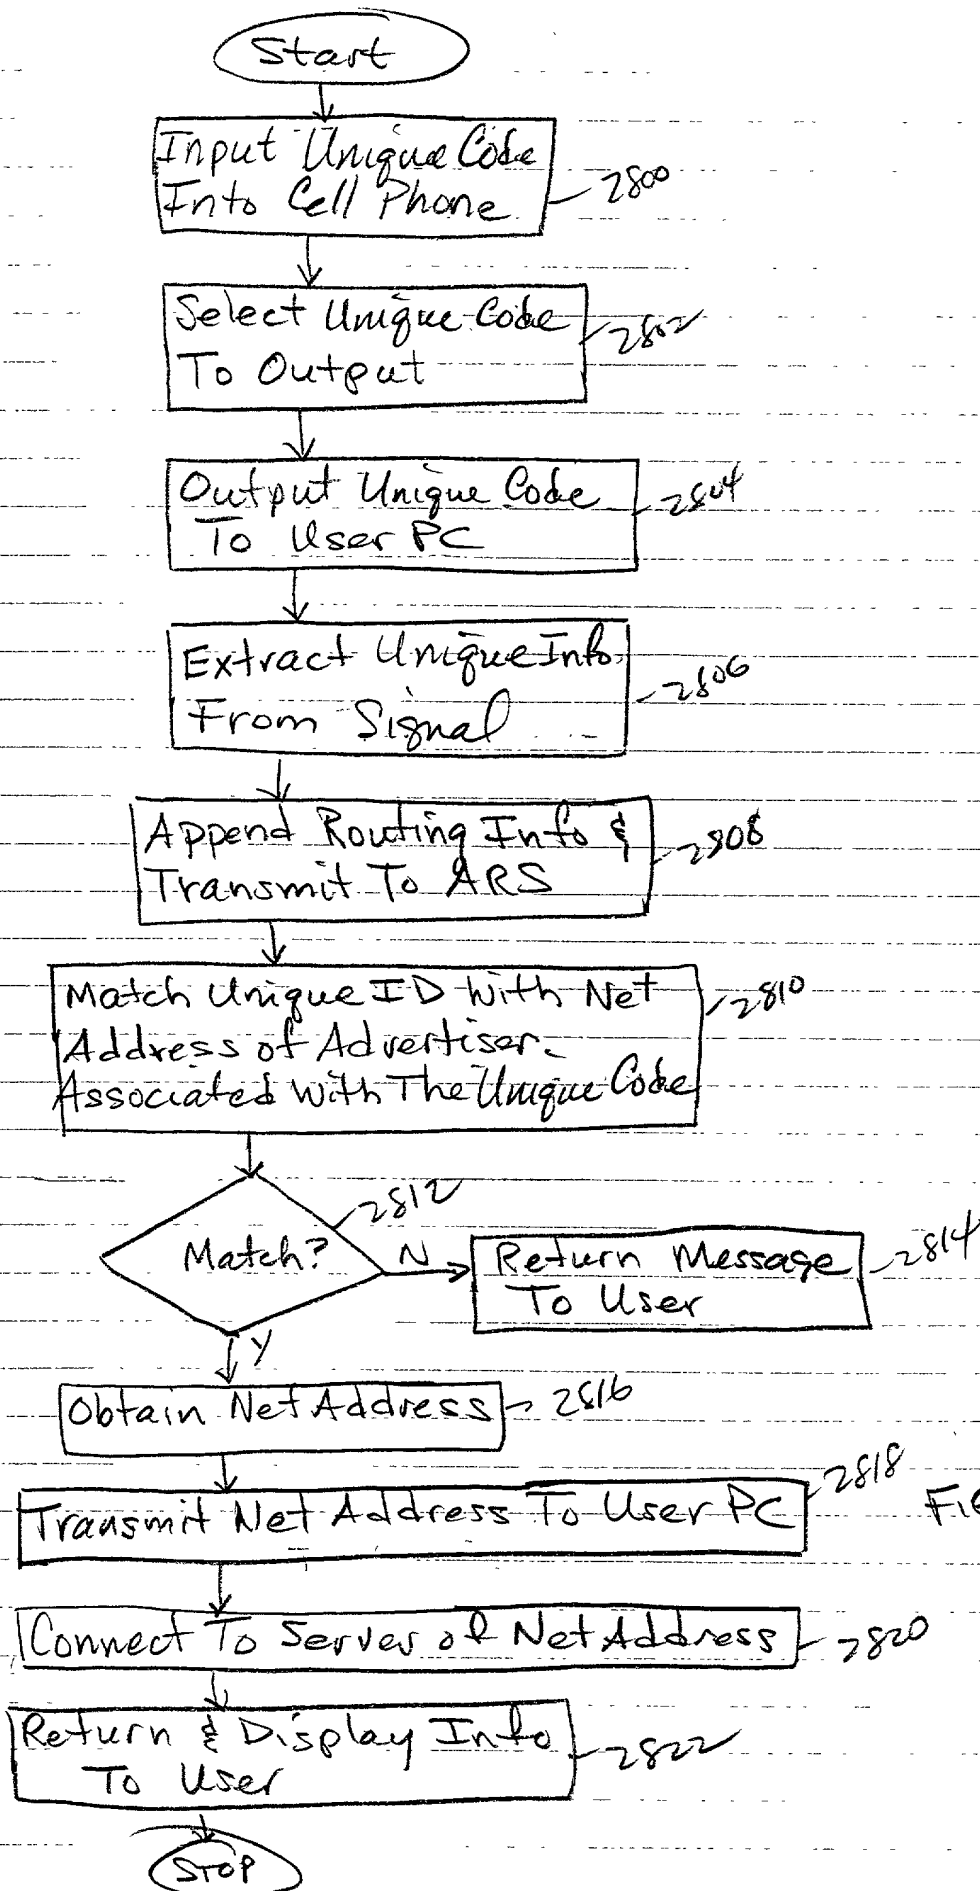 Start
Input Unique Code
Into Cell Phone
2800
Select Unique Code
To Output
2802
Output Unique Code
To User PC
2804
Extract Unique Info
From Signal
2806
Append Routing Info &
Transmit To ARS
2808
Match Unique ID With Net
Address of Advertiser
Associated With The Unique Code
2810
Match?
2812
N
Return Message
To User
2814
Y
Obtain Net Address
2816
Transmit Net Address To User PC
2818
FIG
Connect To Server of Net Address
2820
Return & Display Info
To User
2822
STOP